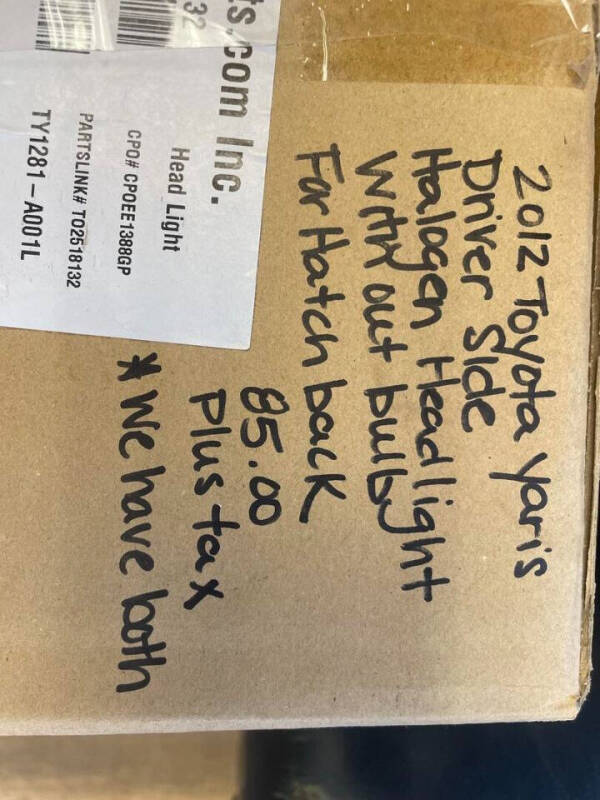 ts.com Inc.
32
Head Light
CPO# CPOEE1388GP
PARTSLINK# TO2518132
TY1281-A001L
2012 Toyota Yaris
Driver Side
Halogen Headlight
With out bulb
For Hatch back
85.00
Plus tax
* We have both